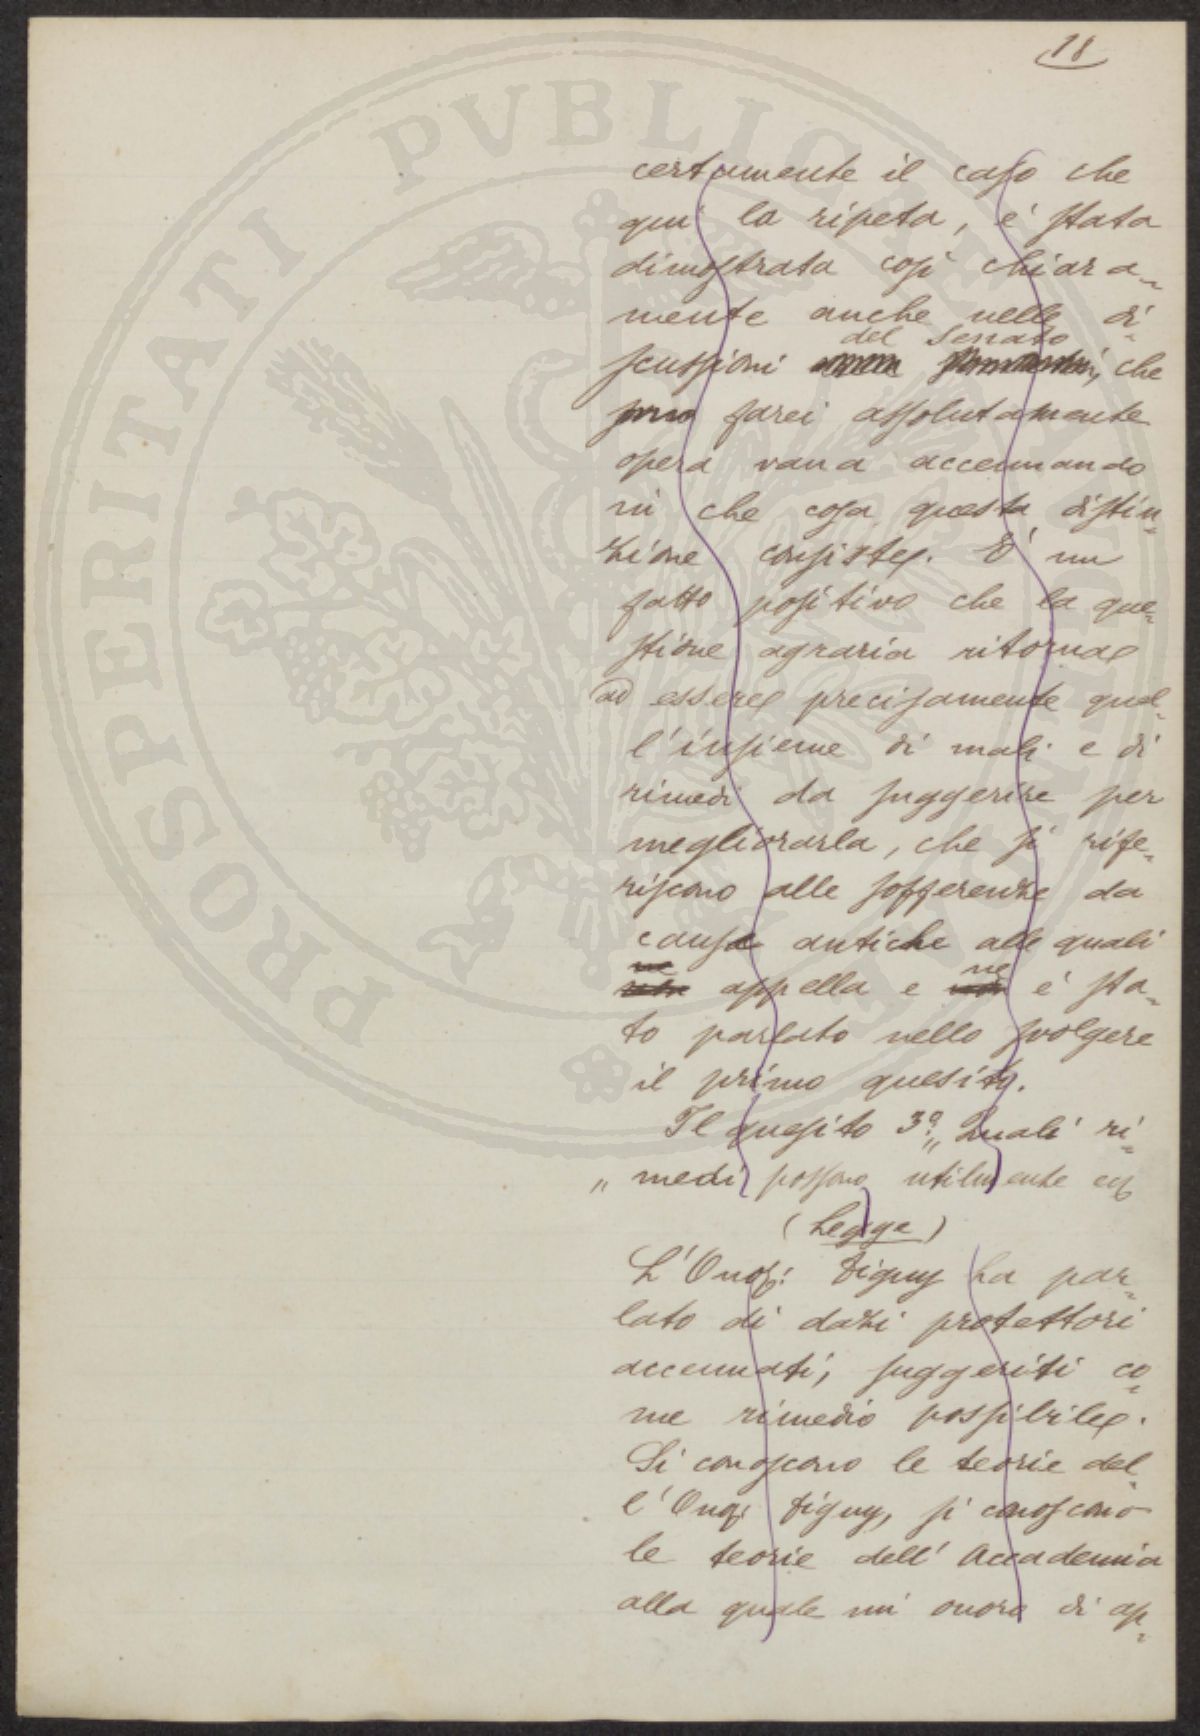 18
certamente il caso che
qui la ripeta, è stata
dimostrata così chiara=
mente anche nelle di=
del Senato
scussioni che
farei assolutamente
opera vana accennando
in che cosa questa distin=
zione consiste. È un
fatto positivo che la que=
stione agraria ritorna
ad essere precisamente quel=
l'insieme di mali e di
rimedi da suggerire per
megliorarla, che si rife=
riscono alle sofferenze da
cause antiche alle quali
ne
appella e ne è sta=
to parlato nello svolgere
il primo quesito.
Il quesito 3º „ Quali ri=
„ medi possono utilmente ecc
(Legge)
L'Onor: Digny ha par=
lato di dazi protettori
accennati, suggeriti co=
me rimedio possibile.
Si conoscono le teorie del=
l'Onor Digny, si conoscono
le teorie dell'Accademia
alla quale mi onoro di ap=
PROSPERITATI PVBLICAE